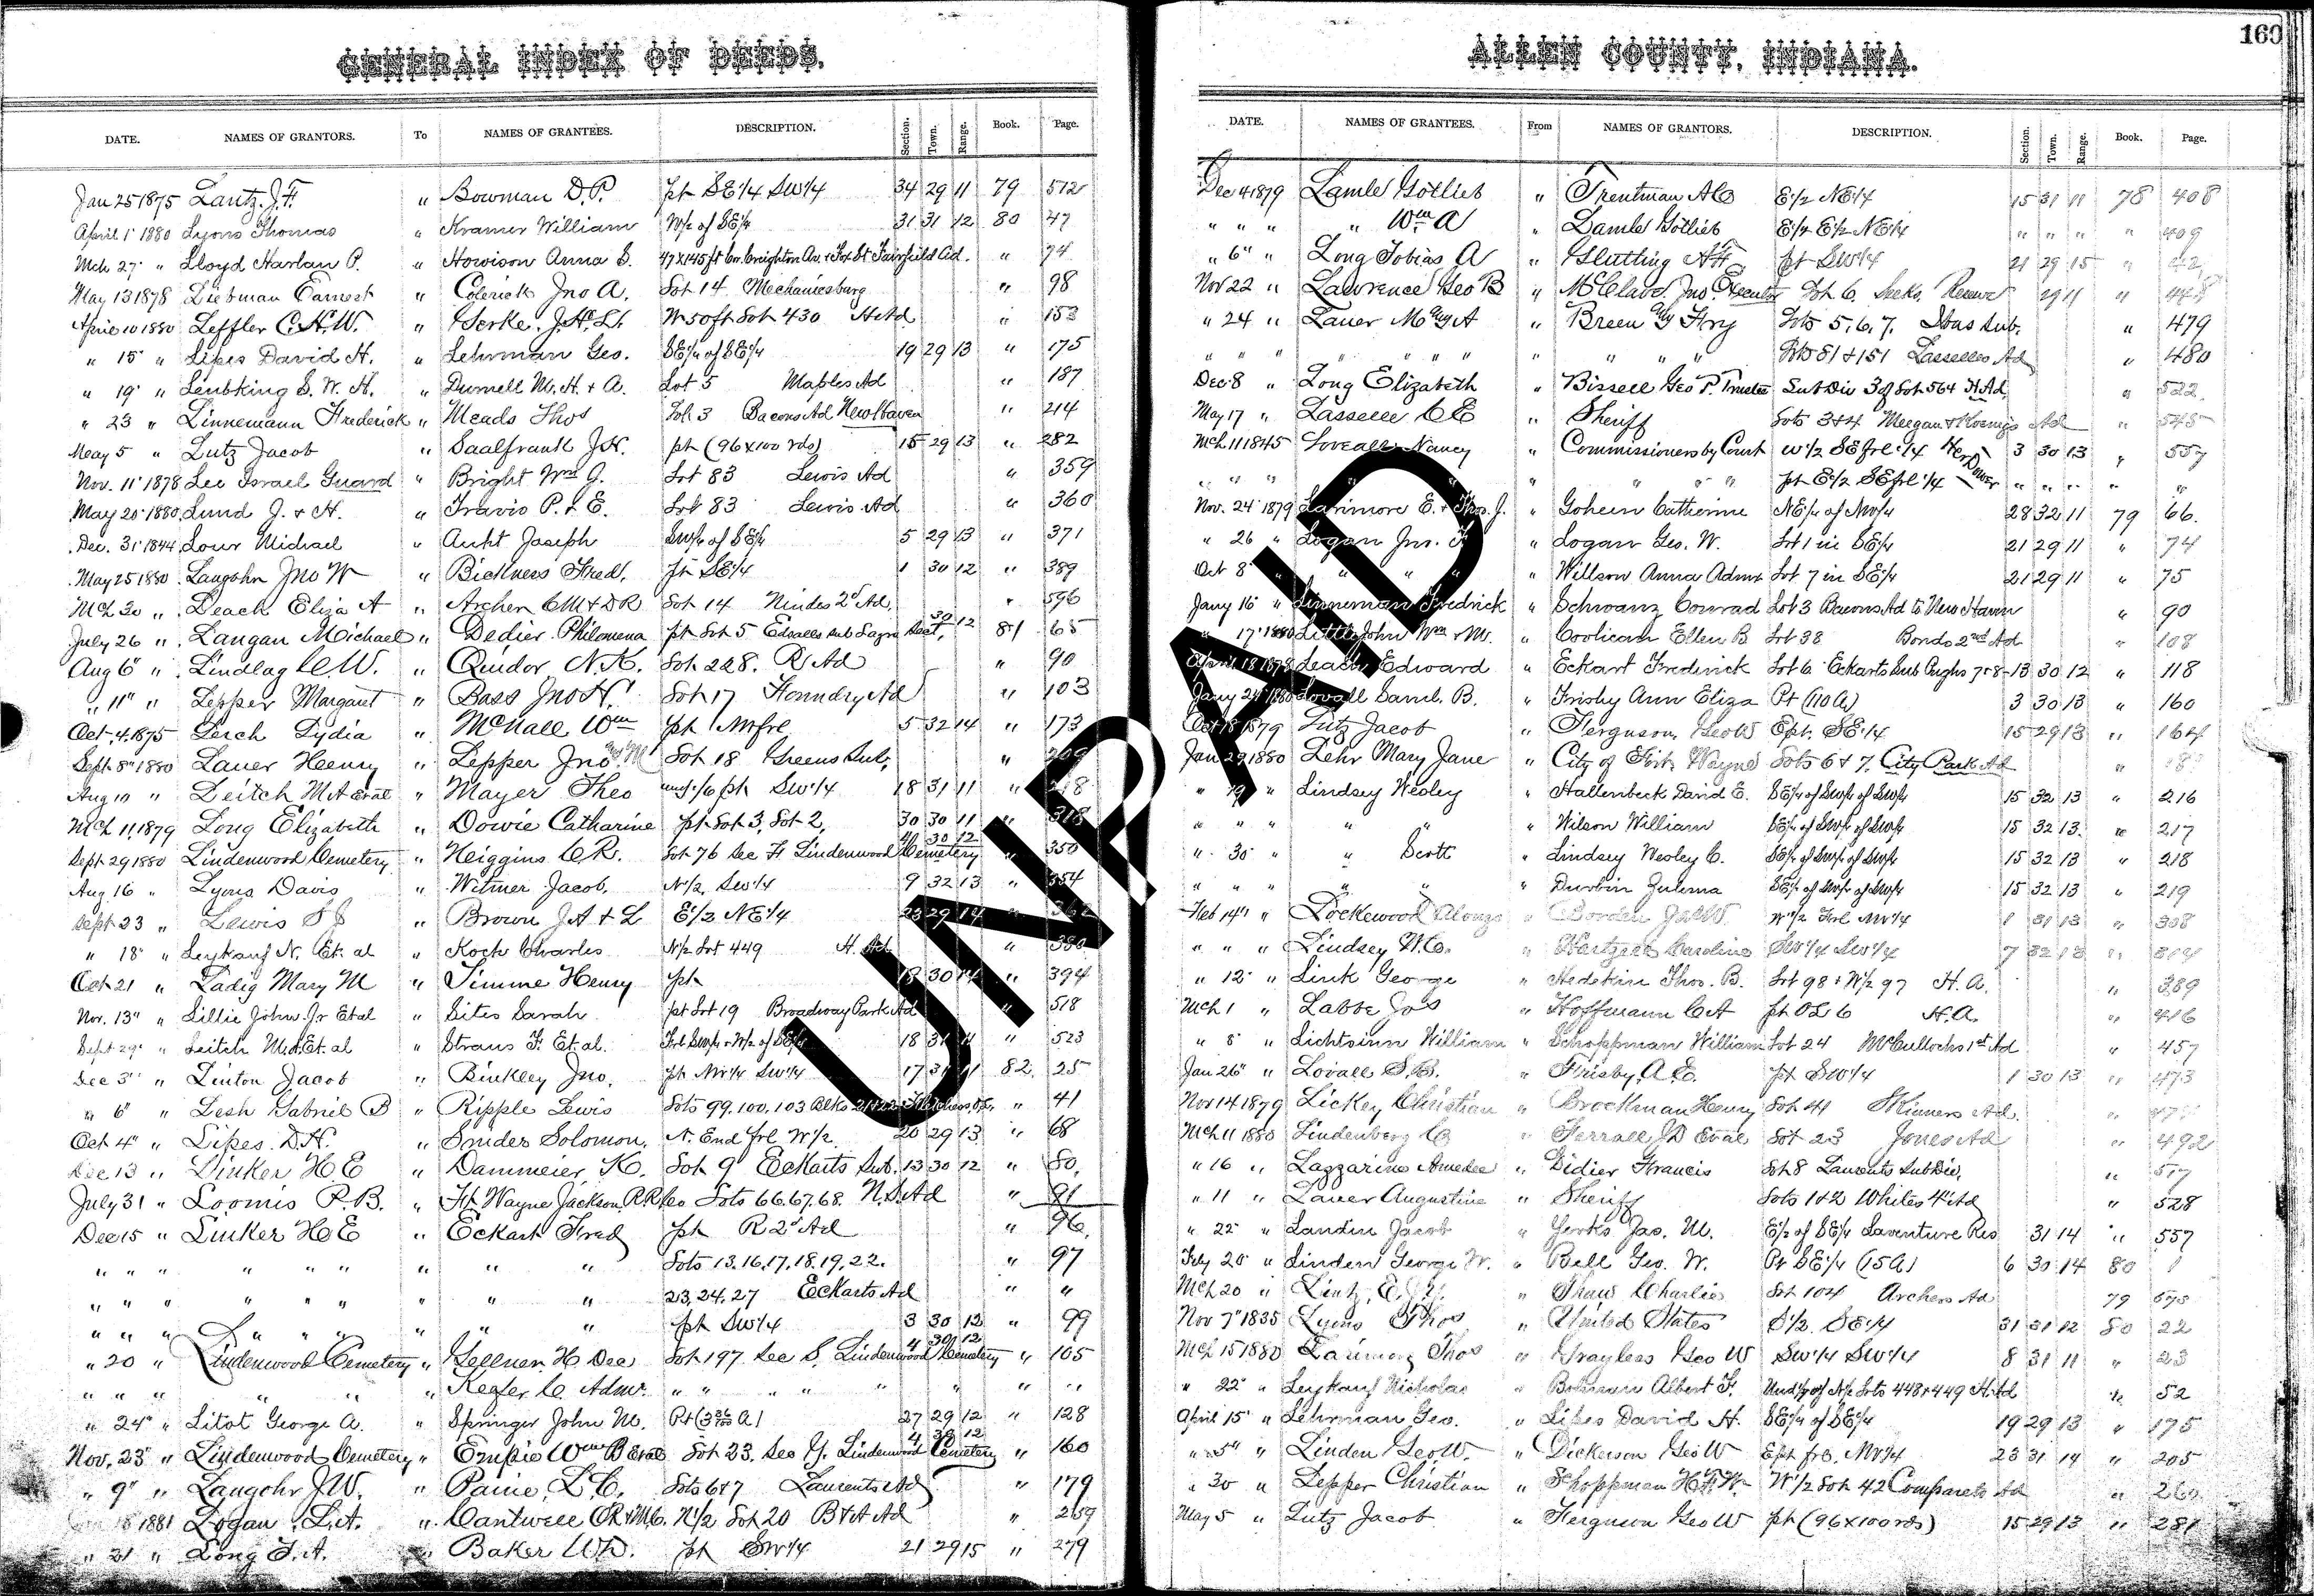 160
GENERAL INDEX OF DEEDS.
DATE. NAMES OF GRANTORS. To NAMES OF GRANTEES. DESCRIPTION. Section. Town. Range. Book. Page.
Jan 25 1875 Lantz J. F. " Bowman D. P. pt SE 1/4 SW 1/4 34 29 11 79 512
April 1 1880 Lyons Thomas " Kramer William W/2 of SE/4 31 31 12 80 47
Mch 27 " Lloyd Harlan P. " Howison Anna S. 47x145 ft Cor. Creighton Av. & Fox St Fairfield Ad. " 74
May 13 1878 Liebman Earnest " Colerick Jno A. Lot 14 Mechanicsburg " 98
April 10 1880 Leffler C. H. W. " Gerke W 50 ft Lot 430 H Ad " 153
" 15 " Lipes David H. " Lehrman Geo. SE/4 of SE/4 19 29 13 " 175
" 19 " S. W. H. " Durnell M. H. & A. Lot 5 Maples Ad " 187
" 23 " Linnemann Frederick " Meads Thos Lot 3 Bacons Ad New Haven " 214
May 5 " Lutz Jacob " Saalfrank J. H. pt (96x100 rds) 15 29 13 " 282
Nov. 11 1878 Lee Israel Guard " Bright Wm J. Lot 83 Lewis Ad " 359
May 20 1880 Lund J. & H. " Travis P. & E. Lot 83 Lewis Ad " 360
Dec. 31 1844 Lour Michael " Aukt Joseph SW/4 of SE/4 5 29 13 " 371
May 25 1880 Langohr Jno W " Bickness Fred. pt SE 1/4 1 30 12 " 389
Mch 30 " Leach Eliza A " Archer C M & D R Lot 14 Nindes 2d Ad " 596
July 26 " Langan Michael " Dedier Philomena pt Lot 5 Edsalls sub 30 12 81 65
Aug 6 " Lindlag C. W. " Quidor N. K. Lot 228. R Ad " 90
" 11 " Lepper Margaret " Bass Jno H. Lot 17 Foundry Ad " 103
Oct. 4. 1875 Lerch Lydia " McNall Wm pt N W frl 5 32 14 " 173
Sept 8 1880 Lauer Henry " Lepper Jno Lot 18 Greens Sub. " 209
Aug 10 " Leitch M A et al " Mayer Theo und 1/6 pt SW 1/4 18 31 11 " 218
Mch 11, 1879 Long Elizabeth " Dowie Catharine pt Lot 3, Lot 2, 30 30 11 " 318
Sept. 29 1880 Lindenwood Cemetery " Heiggins C R. Lot 76 Sec F Lindenwood Cemetery 4 30 12 " 350
Aug 16 " Lyons Davis " Witmer Jacob. N/2 SW 1/4 9 32 13 " 354
Sept 23 " Lewis S J " Brown J A & L E 1/2 NE 1/4 23 29 14 " 362
" 18 " Leykauf N. Et. al " Koch Charles N/2 Lot 449 H. Ad " 380
Oct 21 " Ladig Mary M " Timme Henry pt 18 30 14 " 394
Nov. 13 " Lillie John Jr Et al " Sites Sarah pt Lot 19 Broadway Park Ad " 518
Sept 29 " Leitch M. A. Et. al " Straus F. Et. al. Frl SW/4 & W/2 of SE/4 18 31 11 " 523
Dec 3 " Linton Jacob " Binkley Jno. pt NW 1/4 SW 1/4 17 31 11 82. 25
" 6 " Lesh Gabriel B " Ripple Lewis Lots 99, 100, 103 Blks 21 & 22 " 41
Oct 4 " Lipes. D. H. " Snider Solomon. N. End frl W 1/2 20 29 13 " 68
Dec 13 " Linker H. E " Dammeier K. Lot 9 Eckarts Sub. 13 30 12 " 80.
July 31 " Loomis P. B. " Ft. Wayne Jackson R. R. Co Lots 66. 67. 68. N. S. Ad " 91
Dec 15 " Linker H E " Eckart Fred pt R 2d Ad " 96.
" " " " " " " " " Lots 13. 16. 17. 18. 19. 22. " 97
" " " " " " " " " 23, 24, 27 Eckarts Ad " "
" " " " " " " " " pt SW 1/4 3 30 12 " 99
" 20 " Lindenwood Cemetery " Gellner H Dee Lot 197. Sec S. Lindenwood Cemetery 4 30 12 " 105
" " " " " " Kegler C. Admr. " " " " " " "
" 24 " Litot George A. " Springer John M. 27 29 12 " 128
Nov. 23 " Lindenwood Cemetery " Empie Wm B et al Lot 23. Sec Y. Lindenwood Cemetery 4 30 12 " 160
" 9 " Langohr J. W. " Paine. L. C. Lots 6 & 7 Laurents Ad " 179
18 1881 Logan L. A. " Cantwell N/2 Lot 20 B & A Ad " 259
" 21 " Long T. A. " Baker W D. pt SW 1/4 21 29 15 " 279
ALLEN COUNTY, INDIANA.
DATE. NAMES OF GRANTEES. From NAMES OF GRANTORS. DESCRIPTION. Section. Town. Range. Book. Page.
Dec 4 1879 Lamle Gotlieb " Trentman A C E 1/2 NE 1/4 15 31 11 78 408
" " " " Wm A " Lamle Gotlieb E 1/2 E 1/2 NE 1/4 " " " " 409
" 6 " Long Tobias A " Slutting pt SW 1/4 21 29 15 " 42
Nov 22 " Lawrence Geo B " McClave Jno. Executor Lot 6. Reserve 29 11 " 448
" 24 " Lauer " Breen Lots 5, 6, 7. Sub. " 479
" " " " " " " " " " " Lots 81 & 151 Lasselles Ad " 480
Dec. 8 " Long Elizabeth " Bissell Geo P. Trustee Sub Div 3 of Lot 564 H. Ad. " 522.
May 17 " Lasselle C E " Sheriff Lots 3 & 4 Meegan & Koenigs Ad " 545
Mch. 11 1845 Loveall Nancy " Commissioners by Court W 1/2 SE frl 1/4 Her Dower 3 30 13 " 557
" " " " " " " " pt E 1/2 SE frl 1/4 " " " " "
Nov. 24 1879 Larimore E. & Thos. J. " Gohein Catherine NE/4 of NW/4 28 32 11 79 66.
" 26 " Logan Jno. F " Logan Geo. W. Lot 1 in SE/4 21 29 11 " 74
Oct 8 " " " " " Willson Anna Admx Lot 7 in SE/4 21 29 11 " 75
Jany 16 " Linneman Fredrick " Schwanz Conrad Lot 3 Bacons Ad to New Haven " 90
" 17 1880 Little John Wm & M. " Coolican Ellen B Lot 38 Bonds 2nd Ad " 108
April 18 1878 Leach Edward " Eckart Frederick Lot 6 Eckarts Sub Pughs 7 & 8 13 30 12 " 118
Jany 24 1880 Lovall Saml. B. " Frisby Ann Eliza Pt (110 A) 3 30 13 " 160
Oct 18 1879 Lutz Jacob " Ferguson Geo W E pt. SE 1/4 15 29 13 " 164
Jan 29 1880 Lehr Mary Jane " City of Fort Wayne Lots 6 & 7. City Park Ad "
" 19 " Lindsey Wesley " Hallenbeck David E. SE/4 of SW/4 of SW/4 15 32 13 " 216
" " " " " " Wilson William SE/4 of SW/4 of SW/4 15 32 13. " 217
" 30 " " Scott " Lindsey Wesley C. SE/4 of SW/4 of SW/4 15 32 13 " 218
" " " " " " Durbin Zulema SE/4 of SW/4 of SW/4 15 32 13 " 219
Feb 14 " Lockewood Alonzo " Borden W 1/2 Frl NW 1/4 1 31 13 " 308
" " " Lindsey W. C. " Hartzell Caroline SW 1/4 SW 1/4 7 32 13 "
" 12 " Link George " Hedekin Thos. B. Lot 98 & W/2 97 H. A. " 389
Mch 1 " Labbe Jos " Hoffmann C A pt O L 6 H. A. " 416
" 8 " Lichtsinn William " Schoppman William Lot 24 McCullochs 1st Ad " 457
Jan 26 " Lovall S. B. " Frisby A. E. pt SW 1/4 1 30 13 " 473
Nov 14 1879 Lickey Christian " Brockman Henry Lot 41 Skinners Ad. "
Mch 11 1880 Lindenberg C " Ferrall J D et al Lot 23 Jones Ad " 492
" 16 " Lazzarine Amedee " Didier Francis Lot 8 Laurents Sub Div. " 517
" 11 " Lauer Augustine " Sheriff Lots 1 & 2 Whites 4 Ad " 528
" 22 " Landin Jacob " Yerks Jas. M. E/2 of SE/4 Laventure Res 31 14 " 557
Feby 20 " Linden George W. " Bell Geo. W. Pt SE 1/4 (15 A) 6 30 14 80 1
Mch 20 " Lintz, E. " Shaw Charlie Lot 104 Archers Ad 79 573
Nov 7 1835 Lyons Thos " United States S 1/2 SE 1/4 31 31 12 80 22
Mch 15 1880 Larimore Thos " Grayless Geo W SW 1/4 SW 1/4 8 31 11 " 23
" 22 " Leykauf Nicholas " Bohman Albert F. Und 1/2 of N/2 Lots 448 & 449 H Ad " 52
April 15 " Lehrman Geo. " Lipes David H. SE/4 of SE/4 19 29 13 " 175
" 5 " Linden Geo W. " Dickerson Geo W E pt frl NW 1/4 23 31 14 " 205
" 30 " Lepper Christian " Schoppman H. F. W. W 1/2 Lot 42 Comparets Ad " 260
May 5 " Lutz Jacob " Ferguson Geo W pt (96x100 rds) 15 29 13 " 281
UNPAID